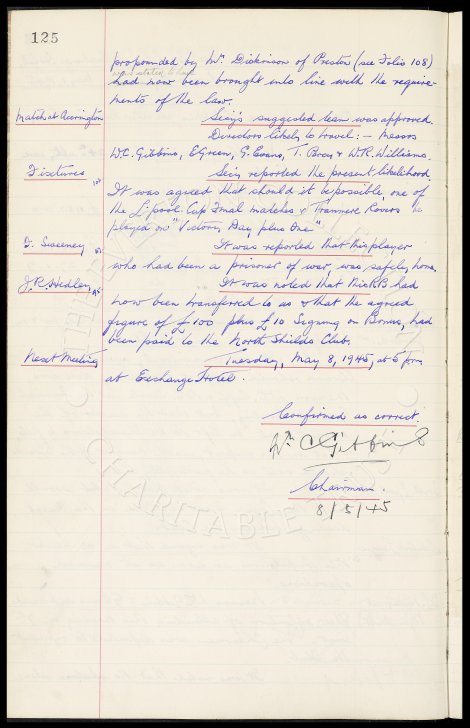 125
propounded by Mr. Dickinson of Preston (see Folio 108)
was stated to have
had now been brought into line with the require-
ments of the law.
Match at Accrington
Secy's suggested team was approved.
Directors likely to travel: - Messrs
W.C. Gibbins, E. Green, G. Evans, T. Brown & W.R. Williams.
Fixtures
Secy reported the present likelihood.
It was agreed that should it be possible, one of
the L'pool Cup Final matches v Tranmere Rovers be
played on "Victory Day, plus One"
J. Sweeney
It was reported that this player
who had been a prisoner of war, was safely home.
J.R. Hedley
It was noted that this RB had
now been transferred to us & that the agreed
figure of £100 plus £10 Signing on Bonus, had
been paid to the North Shields Club.
Next Meeting
Tuesday, May 8, 1945, at 5 pm
at Exchange Hotel.
Confirmed as correct.
Wm C Gibbins
Chairman.
8/5/45
CHARITABLE